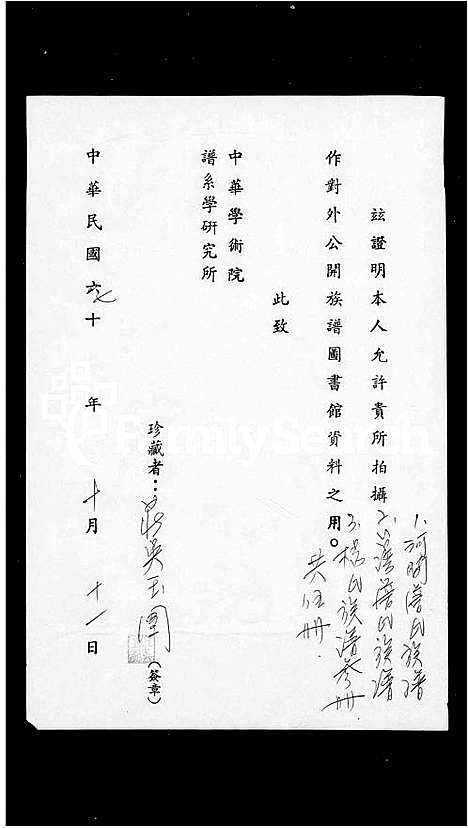 茲證明本人允許貴所拍攝
1.河間詹氏族譜
2.詹氏族譜
3.氏族譜叁冊
共伍冊.
作對外公開族譜圖書館資料之用。
此致
中華學術院
譜系學研究所
珍藏者：吳玉 (簽章)
中華民國六十七年十月十一日
FamilySearch